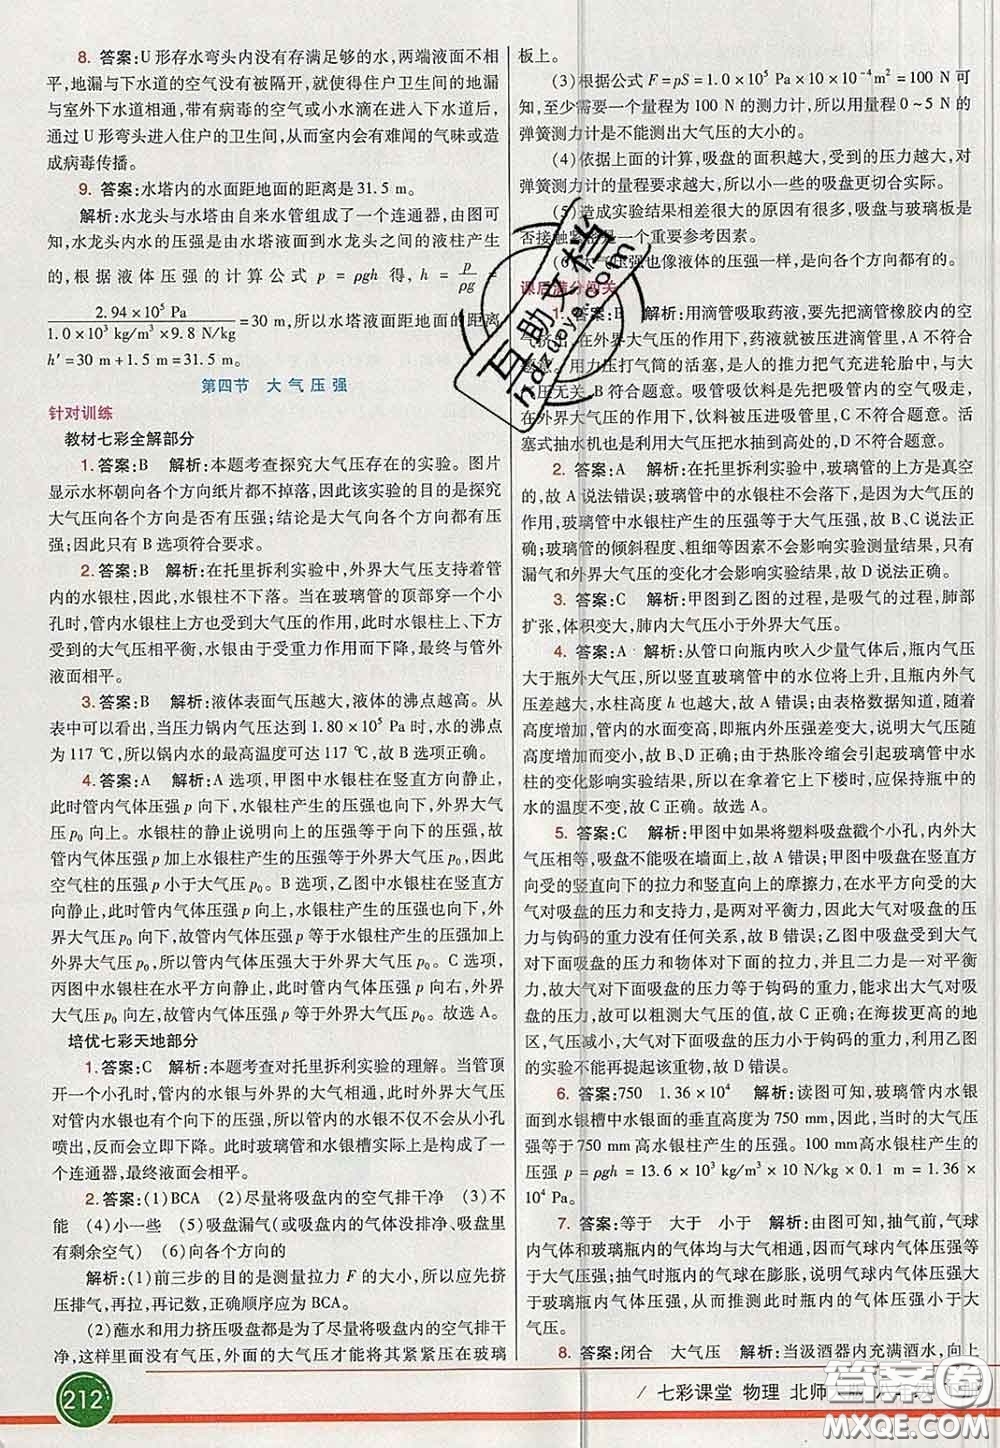 8. 答案:U 形存水弯头内没有存满足够的水,两端液面不相
平,地漏与下水道的空气没有被隔开,就使得住户卫生间的地漏
与室外下水道相通,带有病毒的空气或小水滴在进入下水道后,
通过 U 形弯头进入住户的卫生间,从而室内会有难闻的气味或造
成病毒传播。
9. 答案:水塔内的水面距地面的距离是 31.5 m。
解析:水龙头与水塔由自来水管组成了一个连通器,由图可
知,水龙头内水的压强是由水塔液面到水龙头之间的液柱产生
的,根据液体压强的计算公式 p = ρgh 得, h = p/ρg =
2.94×10⁵ Pa/(1.0×10³ kg/m³×9.8 N/kg)=30 m,所以水塔液面距地面的距离
h′=30 m+1.5 m=31.5 m。
第四节 大气压强
针对训练
教材七彩全解部分
1. 答案:B 解析:本题考查探究大气压存在的实验。图片
显示水杯朝向各个方向纸片都不掉落,因此该实验的目的是探究
大气压向各个方向是否有压强;结论是大气向各个方向都有压
强;因此只有 B 选项符合要求。
2. 答案:B 解析:在托里拆利实验中,外界大气压支持着管
内的水银柱,因此,水银柱不下落。当在玻璃管的顶部穿一个小
孔时,管内水银柱上方也受到大气压的作用,此时水银柱上、下方
受到的大气压相平衡,水银由于受重力作用而下降,最终与管外
液面相平。
3. 答案:B 解析:液体表面气压越大,液体的沸点越高。从
表中可以看出,当压力锅内气压达到 1.80×10⁵ Pa 时,水的沸点
为 117 ℃,所以锅内水的最高温度可达 117 ℃,故 B 选项正确。
4. 答案:A 解析:A 选项,甲图中水银柱在竖直方向静止,
此时管内气体压强 p 向下,水银柱产生的压强向下,外界大气
压 p₀ 向上。水银柱的静止说明向上的压强等于向下的压强,故
管内气体压强 p 加上水银柱产生的压强等于外界大气压 p₀,因此
空气柱的压强 p 小于大气压 p₀。B 选项,乙图中水银柱在竖直方
向静止,此时管内气体压强 p 向上,水银柱产生的压强也向下,外
界大气压 p₀ 向下,故管内气体压强 p 等于水银柱产生的压强加上
外界大气压 p₀,因此管内气体压强大于外界大气压 p₀。C 选项,
丙图中水银柱在水平方向静止,此时管内气体压强 p 向右,外界
大气压 p₀ 向左,故管内气体压强 p 等于大气压 p₀。故选 A。
培优七彩天地部分
1. 答案:C 解析:本题考查对托里拆利实验的理解。当管顶
开一个小孔时,管内的水银与外界的大气相通,此时外界大气压
对管内水银也有个向下的压强,所以管内的水银不仅不会从小孔
喷出,反而会立即下降。此时玻璃管和水银槽实际上是构成了一
个连通器,最终液面会相平。
2. 答案:(1)BCA (2)尽量将吸盘内的空气排干净 (3)不
能 (4)小一些 (5)吸盘漏气(或吸盘内的气体没排净、吸盘里
有剩余空气) (6)向各个方向的
解析:(1)前三步的目的是测量拉力 F 的大小,所以应先挤
压排气,再拉,再记数,正确顺序应为 BCA。
(2)蘸水和用力挤压吸盘都是为了尽量将吸盘内的空气排干
净,这样里面没有气压,外面的大气压才能将其紧紧压在玻璃
板上。
(3)根据公式 F=pS=1.0×10⁵ Pa×10×10⁻⁴m²=100 N 可
知,至少需要一个量程为 100 N 的测力计,所以用量程 0~5 N 的
弹簧测力计是不能测出大气压的大小的。
(4)依据上面的计算,吸盘的面积越大,受到的压力越大,对
弹簧测力计的量程要求越大,所以小一些的吸盘更切合实际。
(5)造成实验结果相差很大的原因有很多,吸盘与玻璃板是
否接触紧密是一个重要参考因素。
(6)大气压强也像液体的压强一样,是向各个方向都有的。
课后满分闯关
1. 答案:B 解析:用滴管吸取药液,要先把滴管橡胶内的空
气挤出,在外界大气压的作用下,药液就被压进滴管里,A 不符合
题意。用力压打气筒的活塞,是人的推力把气充进轮胎中,与大
气压无关,B 符合题意。吸管吸饮料是先把吸管内的空气吸走,
在外界大气压的作用下,饮料被压进吸管里,C 不符合题意。活
塞式抽水机也是利用大气压把水抽到高处的,D 不符合题意。
2. 答案:A 解析:在托里拆利实验中,玻璃管的上方是真空
的,故 A 说法错误;玻璃管中的水银柱不会落下,是因为大气压
的作用,玻璃管中水银柱产生的压强等于大气压强,故 B、C 说法
正确;玻璃管的倾斜程度、粗细等因素不会影响实验测量结果,只有
漏气和外界大气压的变化才会影响实验结果,故 D 说法正确。
3. 答案:C 解析:甲图到乙图的过程,是吸气的过程,肺部
扩张,体积变大,肺内大气压小于外界大气压。
4. 答案:A 解析:从管口向瓶内吹入少量气体后,瓶内气压
大于瓶外大气压,所以竖直玻璃管中的水位将上升,且瓶内外气
压差越大,水柱高度 h 也越大,故 A 错误;由表格数据知道,随着
高度增加,管内的水面变高,即瓶内外压强差变大,说明大气压随
高度增加而变小,故 B、D 正确;由于热胀冷缩会引起玻璃管中水
柱的变化影响实验结果,所以在拿着它上下楼时,应保持瓶中的
水的温度不变,故 C 正确。故选 A。
5. 答案:C 解析:甲图中如果将塑料吸盘戳个小孔,内外大
气压相等,吸盘不能吸在墙面上,故 A 错误;甲图中吸盘在竖直
方向受的竖直向下的拉力和竖直向上的摩擦力,在水平方向受到的大
气对吸盘的压力和支持力,是两对平衡力,因此大气对吸盘的压
力与钩码的重力没有任何关系,故 B 错误;乙图中吸盘受到大气
对下面吸盘的压力和物体对下面的拉力,并且二力是一对平衡
力,故大气对下面吸盘的压力等于钩码的重力,能求出大气压力
的大小,故可以粗测大气压的值,故 C 正确;在海拔更高的地
区,气压减小,大气对下面吸盘的压力小于钩码的重力,利用乙图
的实验不能再提起该重物,故 D 错误。
6. 答案:750 1.36×10⁴ 解析:读图可知,玻璃管内水银
面到水银槽中水银面的垂直高度为 750 mm,因此,当时的大气压
强等于 750 mm 高水银柱产生的压强。100 mm 高水银柱产生的
压强 p = ρgh = 13.6 × 10³ kg/m³ × 10 N/kg × 0.1 m = 1.36 ×
10⁴ Pa。
7. 答案:等于 大于 小于 解析:由图可知,抽气前,气球
内气体和玻璃瓶内的气体均与大气相通,因而气球内气体压强等
于大气压强;抽气时瓶内的气球在膨胀,说明气球内气体压强大
于玻璃瓶内气体压强,从而推测此时瓶内的气体压强小于大
气压。
8. 答案:闭合 大气压 解析:当汲酒器内充满酒水,向上
212
七彩课堂 物理 北师
答案圈
MXQE.COM
百助文档